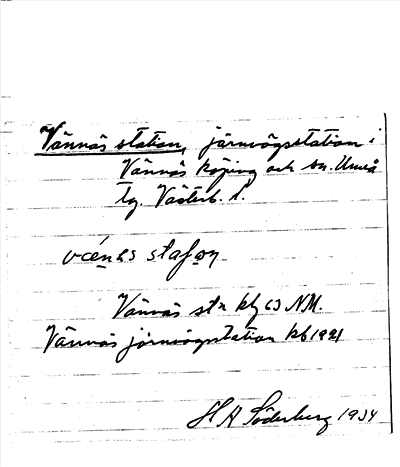 Vännäs station, järnvägsstation i
Vännäs köping och sn. Umeå
tg. Västerb. l.
Vännäs stn kbl 63 NM.
Vännäs järnvägsstation kb 1921
H A Söderberg 1934